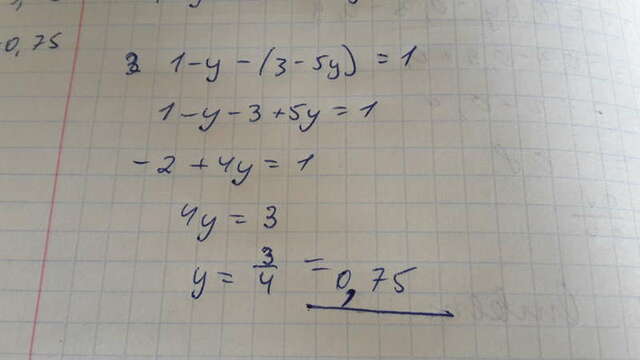 0,75
3 1-y-(3-5y)=1
1-y-3+5y=1
-2+4y=1
4y=3
y=3/4=0,75